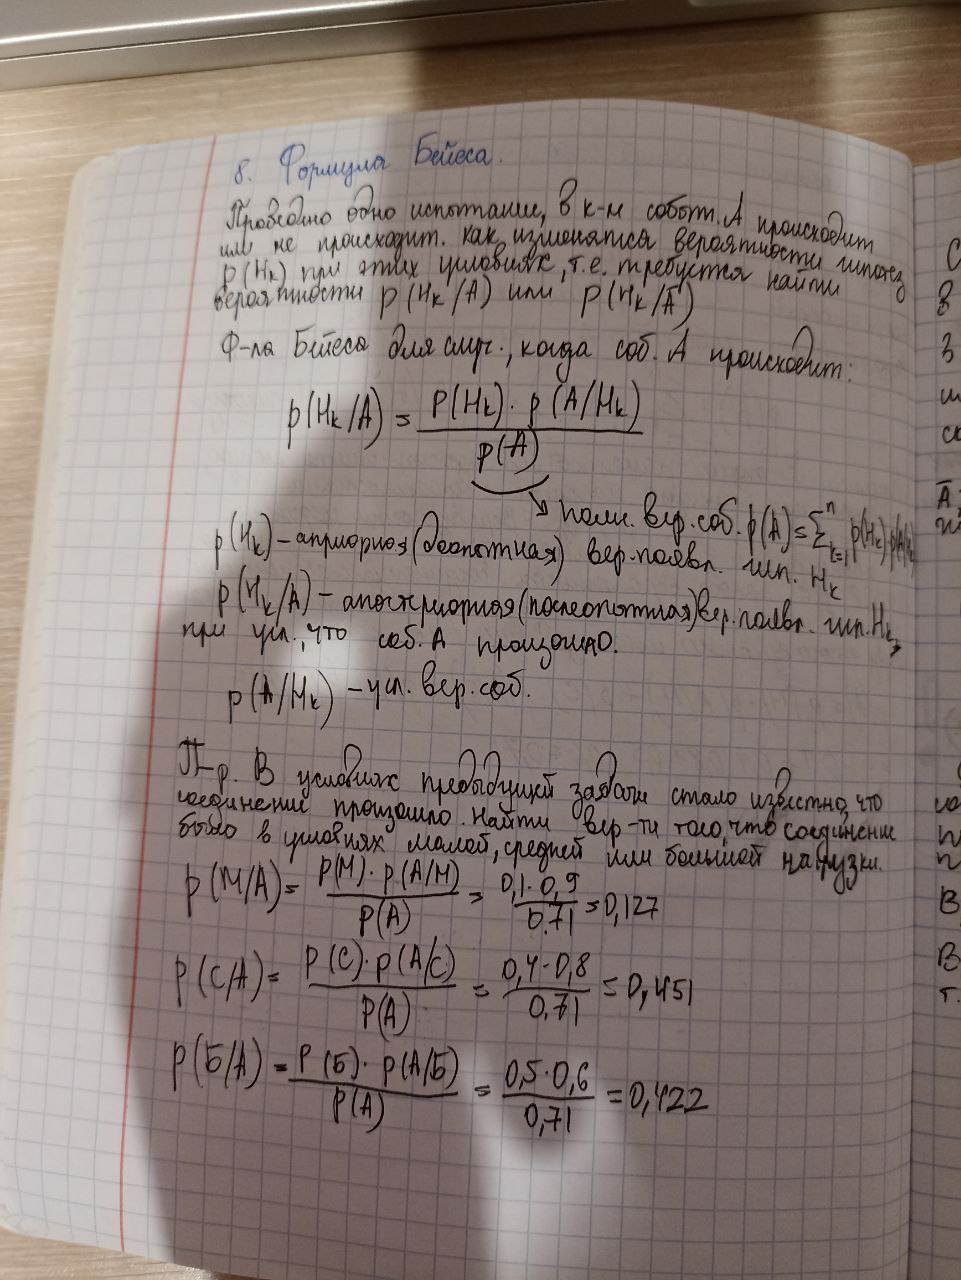 8. Формула Бейеса.
Проведено одно испытание, в к-м событ. А происходит
или не происходит. Как изменятся вероятности гипотез
p(Hk) при этих условиях, т.е. требуется найти
вероятности p(Hk/A) или p(Hk/Ā)
Ф-ла Бейеса для случ., когда соб. А происходит:
p(Hk/A) = P(Hk) · p(A/Hk) / p(A)
полн. вер. соб. p(A) = ∑ⁿₖ₌₁ p(Hk)·p(A/Hk)
p(Hk) – априорная (доопытная) вер. появл. гип. Hk
p(Hk/A) – апостериорная (послеопытная) вер. появл. гип. Hk,
при усл., что соб. А произошло.
p(A/Hk) – усл. вер. соб.
П-р. В условиях предыдущей задачи стало известно, что
соединение произошло. Найти вер-ти того, что соединение
было в условиях малой, средней или большой нагрузки.
p(М/А) = p(М) · p(А/М) / p(А) = 0,1 · 0,9 / 0.71 = 0,127
p(С/А) = p(С) · p(А/С) / p(А) = 0,4 · 0,8 / 0,71 = 0,451
p(Б/А) = p(Б) · p(А/Б) / p(А) = 0,5 · 0,6 / 0,71 = 0,422